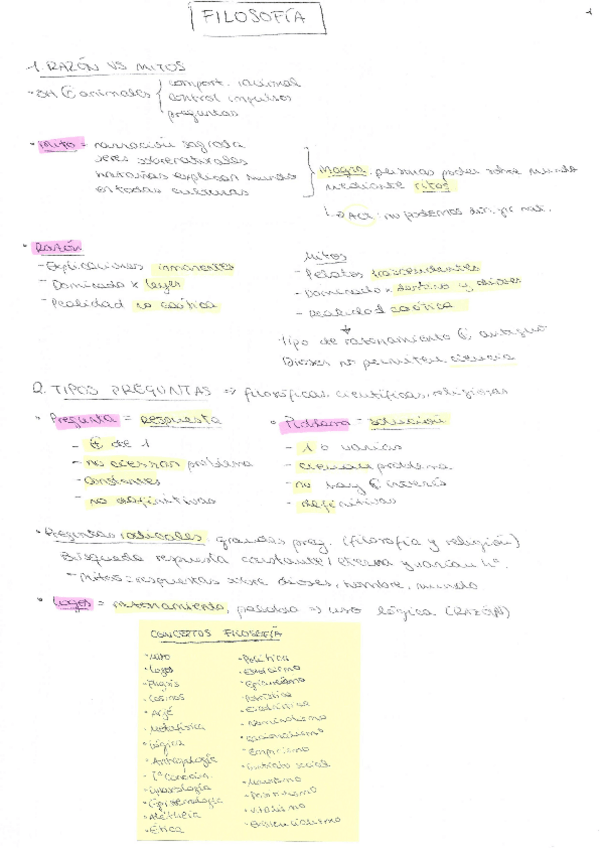 FILOSOFÍA
1. RAZÓN VS MITOS
comport. racional
animales control impulsos
preguntas
• Mito = narración sagrada
seres sobrenaturales
explican mundo
en todas culturas
Magia: personas poder sobre mundo
mediante ritos
↳ ACT: no podemos
• Razón
- Explicaciones inmanentes
- Dominado x leyes
- Realidad no caótica
Mitos
- Relatos trascendentes
- Dominado x destino y dioses
- Realidad caótica
↓
Tipo de razonamiento antiguo
Dioses no permiten ciencia
2. TIPOS PREGUNTAS ⇒ filosóficas, científicas, religiosas
• Pregunta = respuesta
- de 1
- no cierran problema
- constantes
- no definitivas
• Problema = solución
- 1 o varias
- cierran problema
- no hay interés
- definitivas
• Preguntas radicales: grandes preg. (filosofía y religión)
Búsqueda respuesta constante/eterna y varían
- mitos = respuestas sobre dioses, hombre, mundo
• Logos = razonamiento, palabra ⇒ uso lógica (RAZÓN)
CONCEPTOS FILOSOFÍA
• Mito
• Logos
• Physis
• Cosmos
• Arjé
• Metafísica
• Lógica
• Antropología
• Tª Conocim.
• Epistemología
• Aletheia
• Ética
• Política
• Estoicismo
• Epicureísmo
• Patrística
• Escolástica
• Nominalismo
• Racionalismo
• Empirismo
• Contrato social
• Marxismo
• Positivismo
• Vitalismo
• Existencialismo